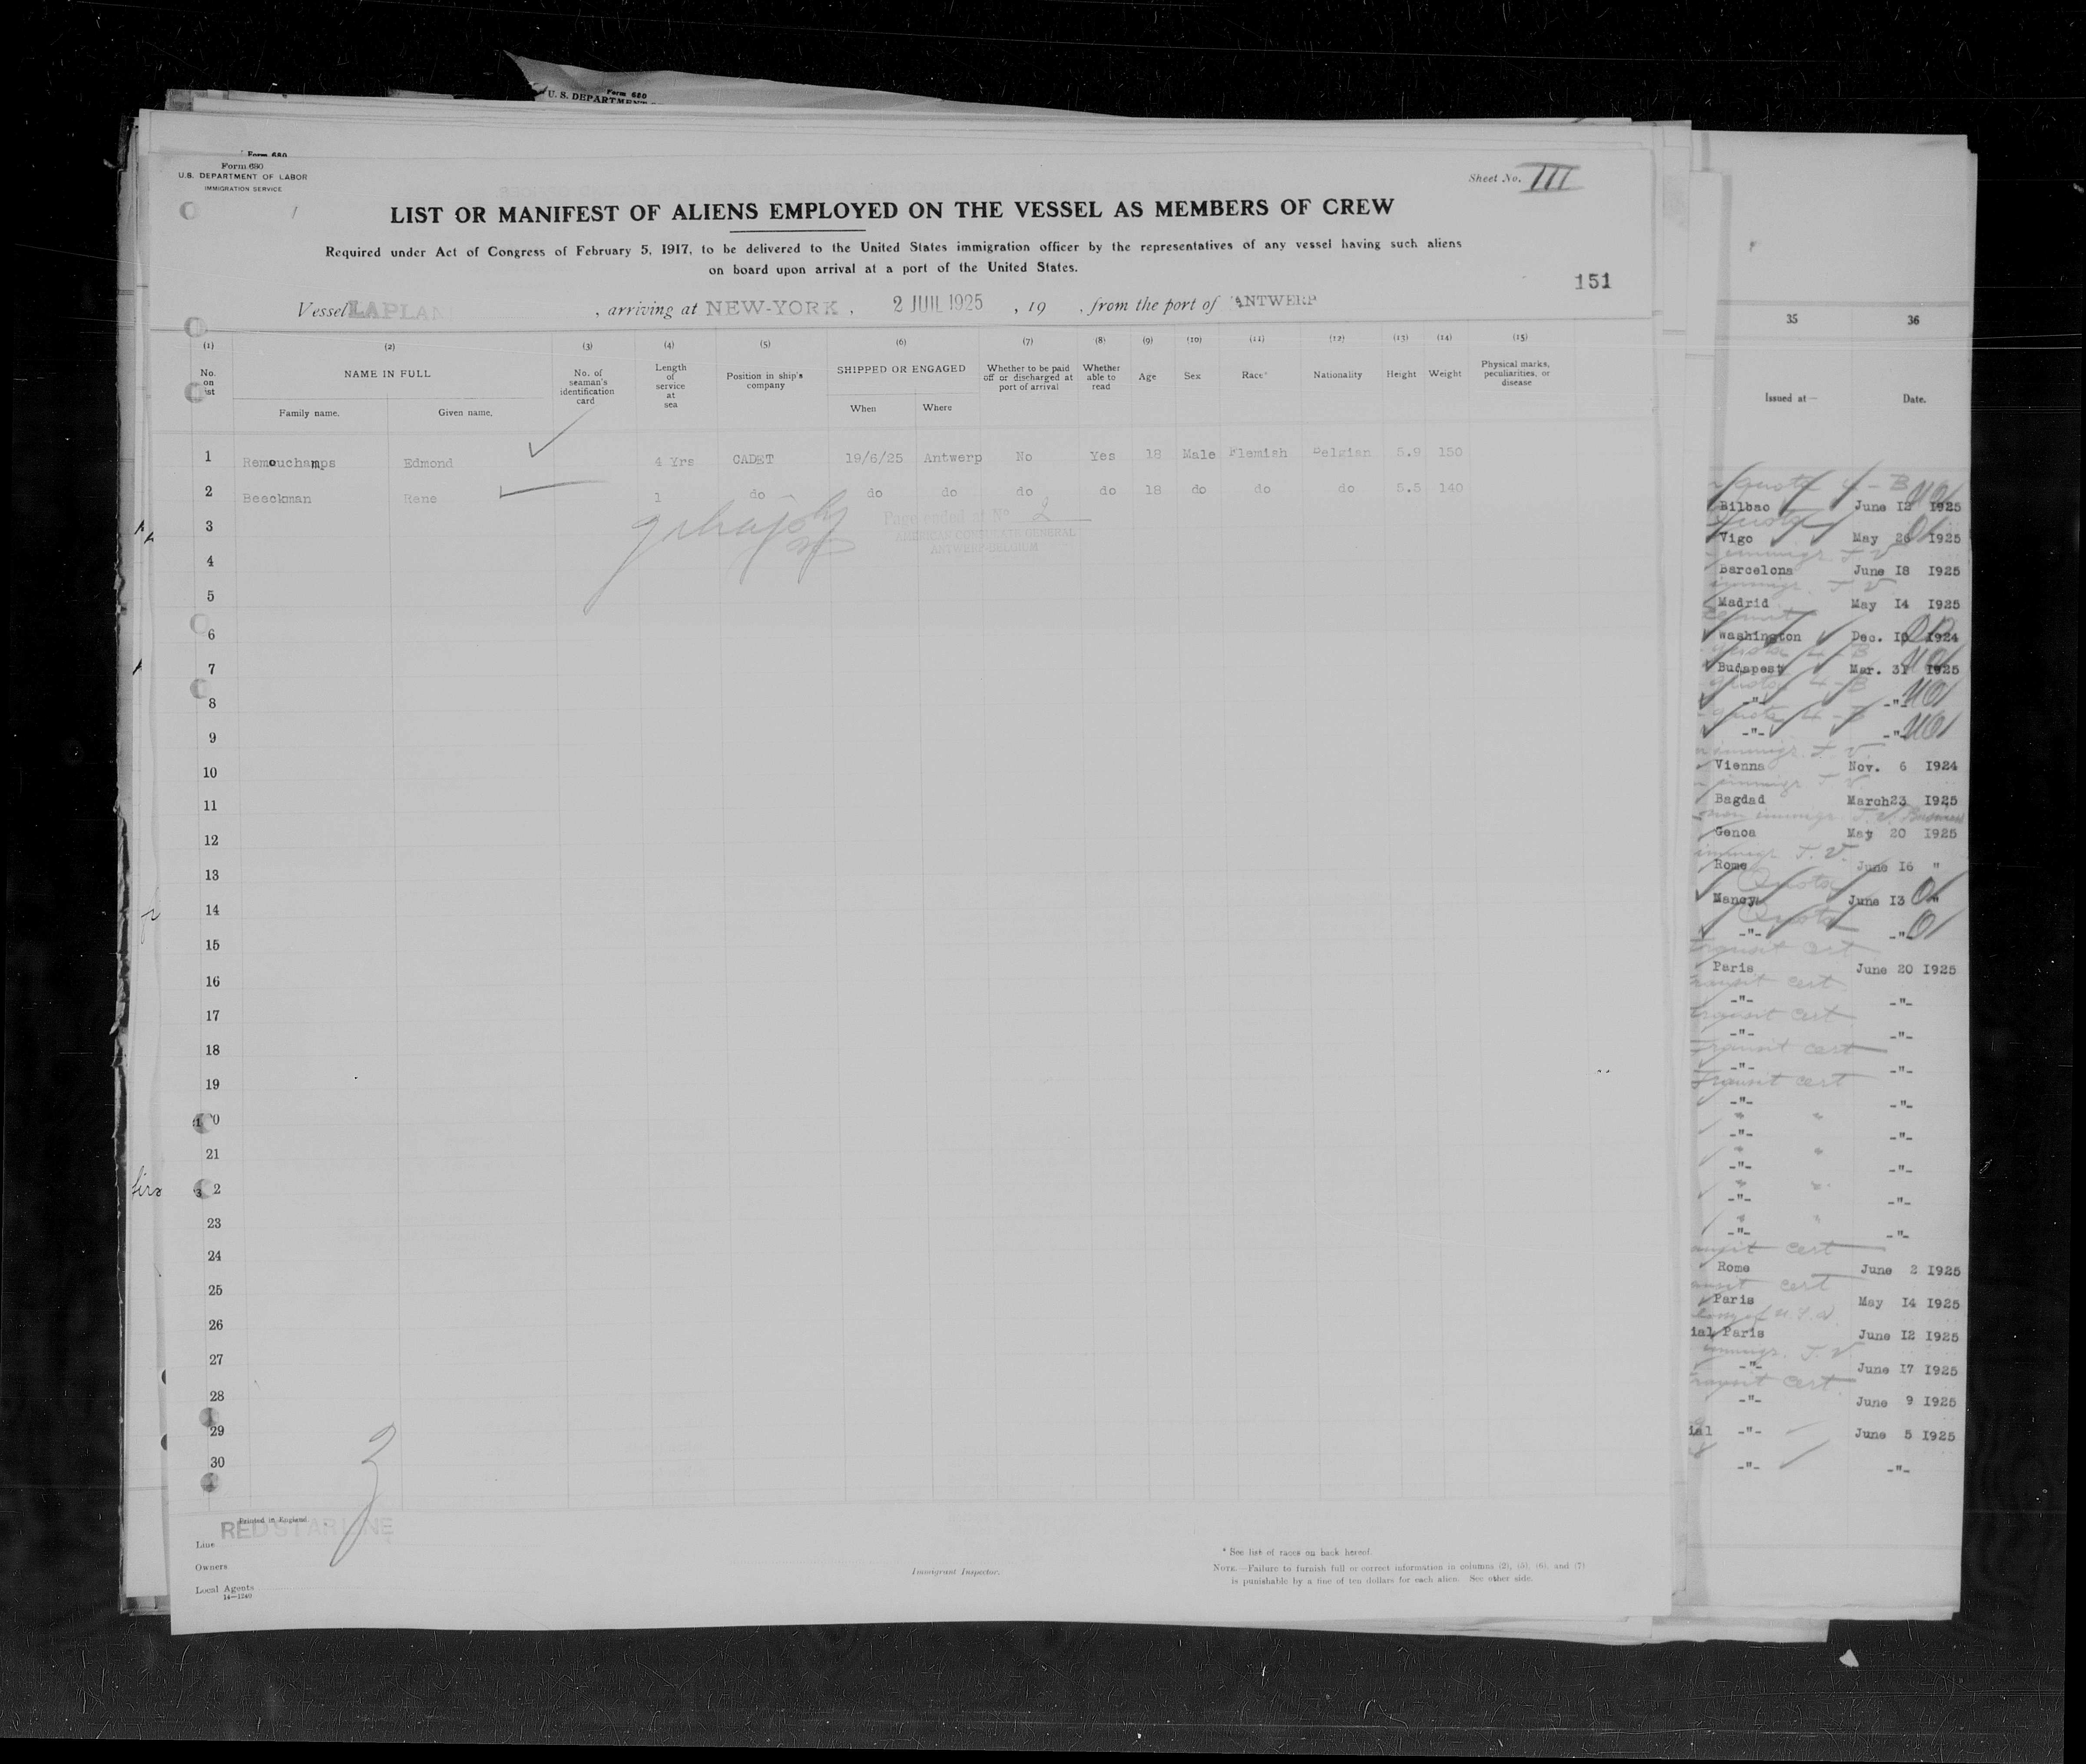 Form 680
U. S. DEPARTMENT
Form 680
Form 680
U.S. DEPARTMENT OF LABOR
IMMIGRATION SERVICE
Sheet No. III
LIST OR MANIFEST OF ALIENS EMPLOYED ON THE VESSEL AS MEMBERS OF CREW
Required under Act of Congress of February 5, 1917, to be delivered to the United States immigration officer by the representatives of any vessel having such aliens
on board upon arrival at a port of the United States.
151
Vessel LAPLAN , arriving at NEW-YORK , 2 JUIL 1925 , 19 , from the port of ANTWERP
(1) (2) (3) (4) (5) (6) (7) (8) (9) (10) (11) (12) (13) (14) (15)
No. on ist NAME IN FULL No. of seaman's identification card Length of service at sea Position in ship's company SHIPPED OR ENGAGED Whether to be paid off or discharged at port of arrival Whether able to read Age Sex Race* Nationality Height Weight Physical marks, peculiarities, or disease
Family name. Given name. When Where
1 Remouchamps Edmond 4 Yrs CADET 19/6/25 Antwerp No Yes 18 Male Flemish Belgian 5.9 150
2 Beeckman Rene 1 do do do do do 18 do do do 5.5 140
Page ended at No 2
AMERICAN CONSULATE GENERAL
ANTWERP-BELGIUM
3
4
5
6
7
8
9
10
11
12
13
14
15
16
17
18
19
0
21
2
23
24
25
26
27
28
29
30
Printed in England
RED STAR LINE
Line
Owners
Local Agents
14—1240
Immigrant Inspector.
* See list of races on back hereof.
NOTE.—Failure to furnish full or correct information in columns (2), (5), (6), and (7)
is punishable by a fine of ten dollars for each alien. See other side.
35 36
Issued at— Date.
quota 4-B
Bilbao June 12 1925
Quota
Vigo May 26 1925
immigr. T.V
Barcelona June 18 1925
immigr. T.V.
Madrid May 14 1925
Washington Dec. 10 1924
quota 4-B
Budapest Mar. 31 1925
quota 4-B
-"- -"-
quota 4-B
-"- -"-
immigr. T.V.
Vienna Nov. 6 1924
immigr T.V.
Bagdad March 23 1925
non immigr. T.V. Business
Genoa May 20 1925
immigr T.V.
Rome June 16 "
Quota
Nancy June 13 "
Quota
-"- -"-
Transit cert
Paris June 20 1925
Transit cert
-"- -"-
Transit cert
-"- -"-
Transit cert
-"- -"-
Transit cert
-"- -"-
" "
-"- -"-
" "
-"- -"-
" "
-"- -"-
" "
-"- -"-
ansit cert
Rome June 2 1925
ansit cert
Paris May 14 1925
ial Paris June 12 1925
immigr. T.V.
-"- June 17 1925
Transit cert.
-"- June 9 1925
ial -"- June 5 1925
-"- -"-